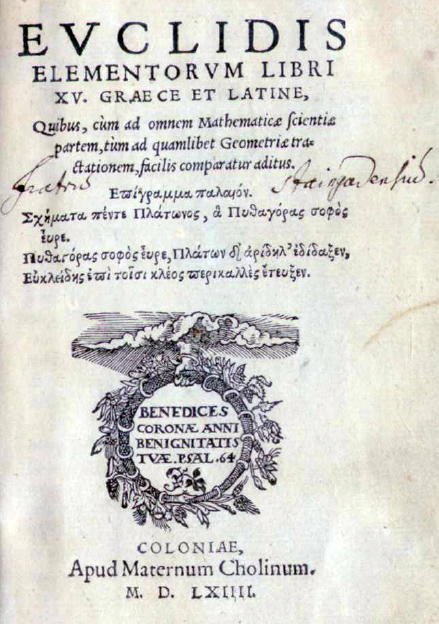 EVCLIDIS
ELEMENTORVM LIBRI
XV. GRAECE ET LATINE,
Quibus, cùm ad omnem Mathematicæ scientiæ
partem, tùm ad quamlibet Geometriæ tra-
ctationem, facilis comparatur aditus.
Επίγραμμα παλαιόν.
Σχήματα πέντε Πλάτωνος, ἃ Πυθαγόρας σοφὸς
εὗρε.
Πυθαγόρας σοφὸς εὗρε, Πλάτων δ' ἀρίδηλ' ἐδίδαξεν,
Εὐκλείδης ἐπὶ τοῖσι κλέος περικαλλὲς ἔτευξεν.
BENEDICES
CORONÆ ANNI
BENIGNITATIS
TVÆ. PSAL. 64
COLONIAE,
Apud Maternum Cholinum.
M. D. LXIIII.